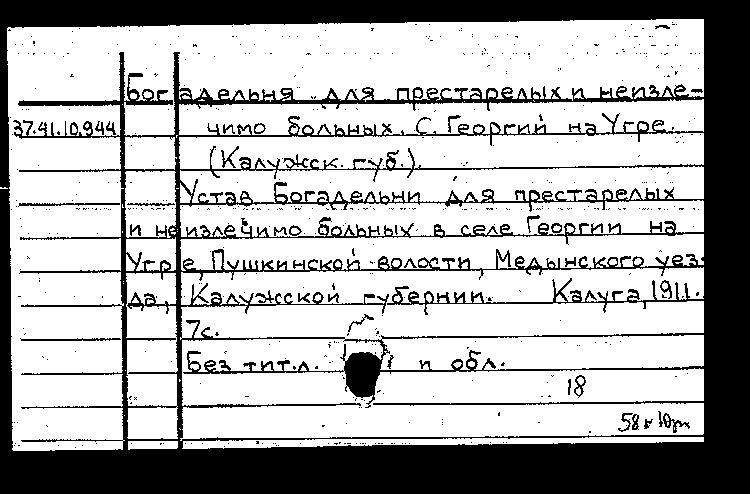 Богадельня для престарелых и неизле-
37.41.10.944 чимо больных. С. Георгий на Угре.
(Калужск. губ.).
Устав Богадельни для престарелых
и неизлечимо больных в селе Георгии на
Угре, Пушкинской волости, Медынского уез-
да, Калужской губернии. Калуга, 1911.
7с.
Без тит.л. и обл.
18
58